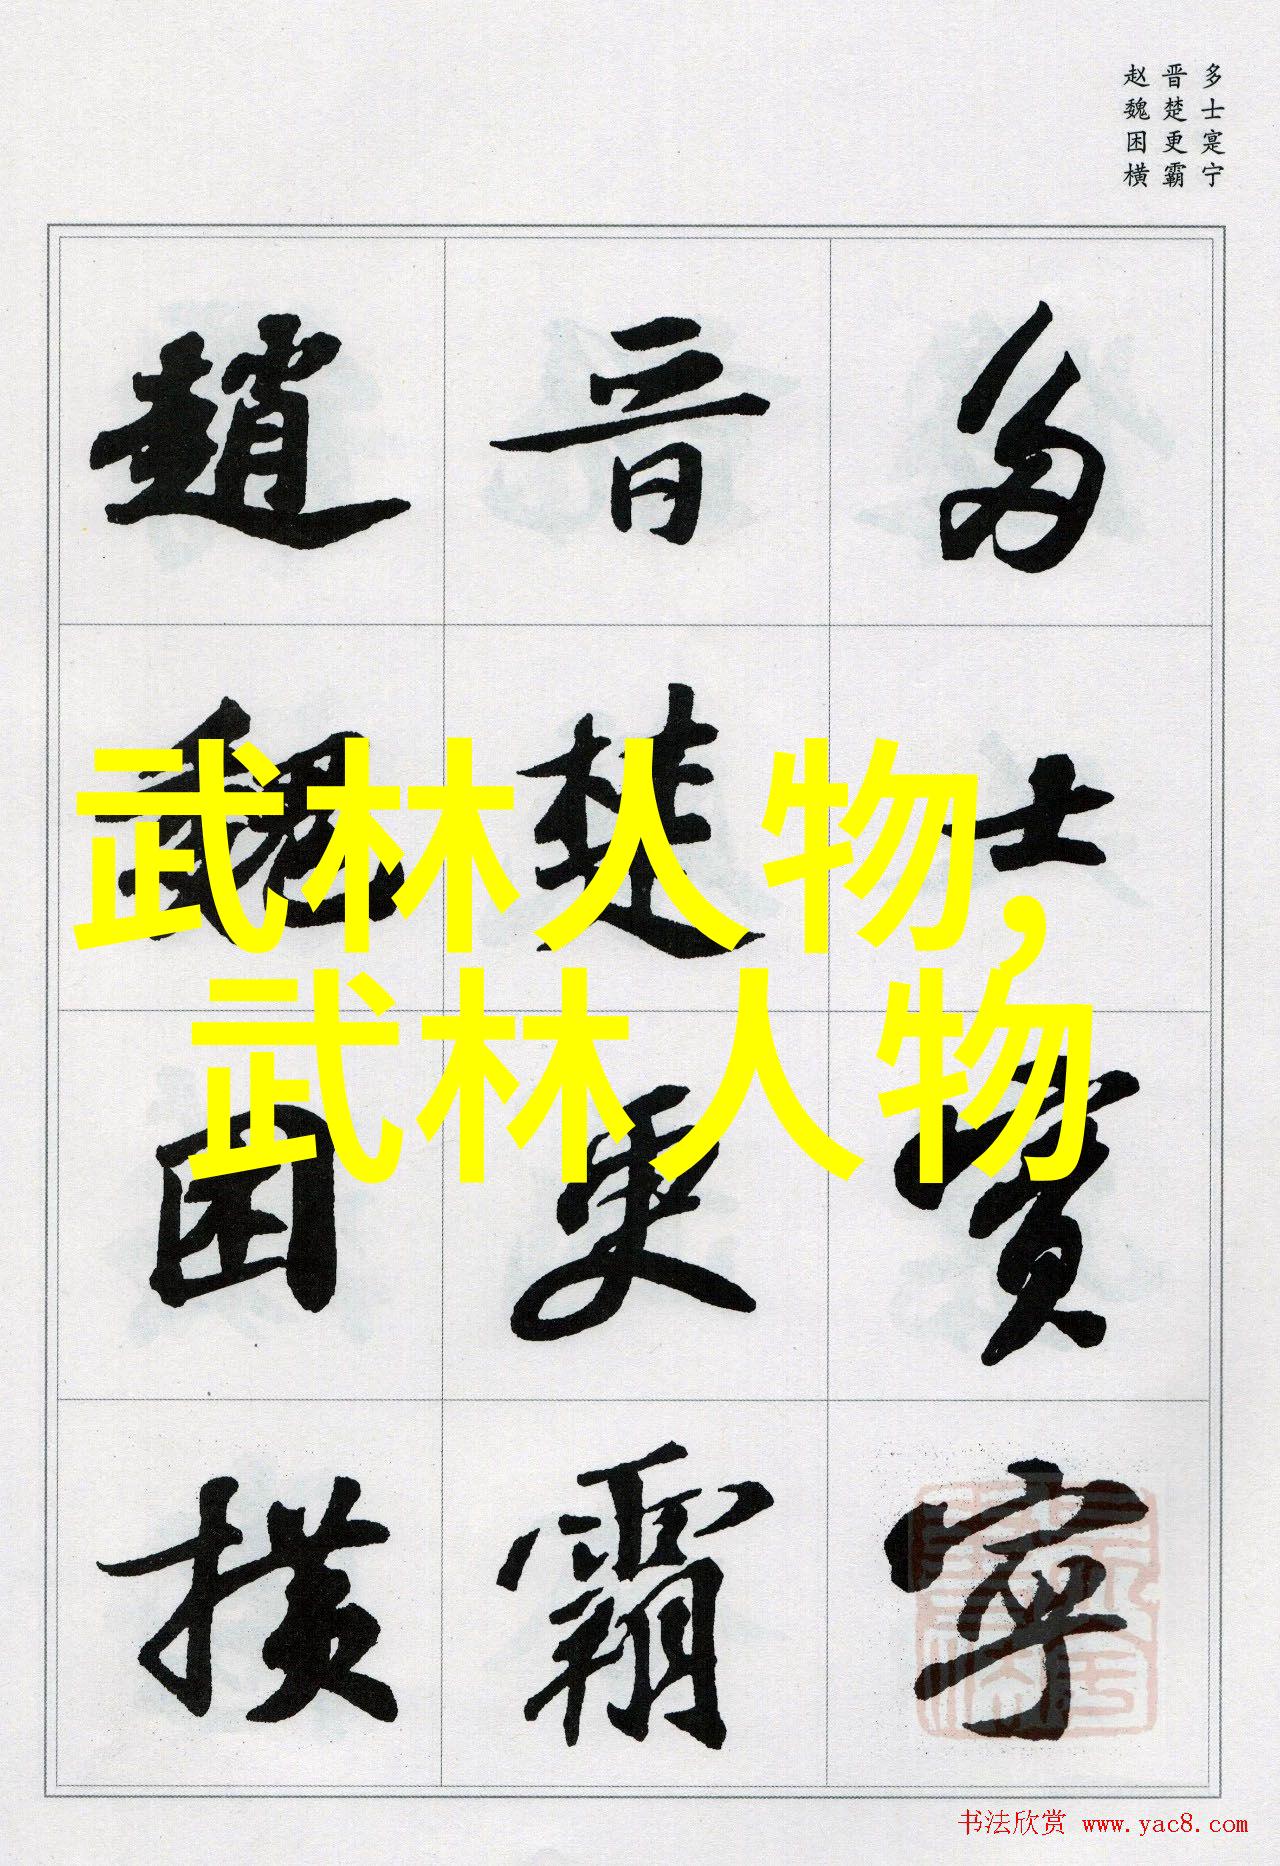 多士寔宁
晋楚更霸
赵魏困横
多士寔寧
晉楚更霸
趙魏困橫
武林人物，
武林人物
书法欣赏 www.yac8.com